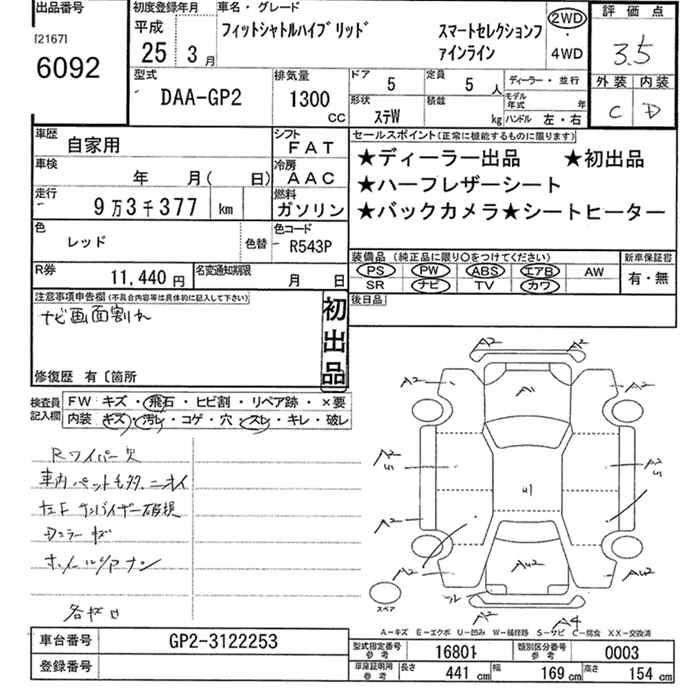 出品番号 初度登録年月 車名・グレード 評価点
[2167] 6092
平成 25 3月
フィットシャトルハイブリッド スマートセレクションファインライン
2WD・4WD
3.5
外装 内装
C D
型式 排気量 ドア 定員 ディーラー・並行
DAA-GP2 1300 CC 5 5人
形状 積載 モデル年式 年
ステW kg ハンドル 左・右
車歴 自家用 シフト FAT
セールスポイント(正常に機能するものに限ります)
車検 年 月( 日) 冷房 AAC
★ディーラー出品 ★初出品
★ハーフレザーシート
★バックカメラ★シートヒーター
走行 9万3千377 km 燃料 ガソリン
色 レッド 色替 色コード R543P
装備品(純正品に限り○をつけてください) 新車保証書
PS PW ABS エアB AW 有・無
SR ナビ TV カワ
R券 11,440円 名変通知期限 月 日
後日品
注意事項申告欄(不具合内容等は具体的に記入して下さい)
ナビ画面割れ
初出品
修復歴 有〔箇所
検査員記入欄 FW キズ・飛石・ヒビ割・リペア跡・×要
内装 キズ・汚レ・コゲ・穴・スレ・キレ・破レ
Rワイパー欠
車内ペット毛多、ニオイ
左F サンバイザー破損
Dミラーキズ
各サビ
A2 A2
A2 A1 A2
A2 U1 U1 A2 U1
A2
A2 AU2 AU2
A2 A4
スペア
A-キズ E-エクボ U-凹み W-補修跡 S-サビ C-腐食 XX-交換済
車台番号 GP2-3122253
登録番号
型式指定番号 参考 16801 類別区分番号 参考 0003
車庫証明用 参考 長さ 441cm 幅 169cm 高さ 154cm